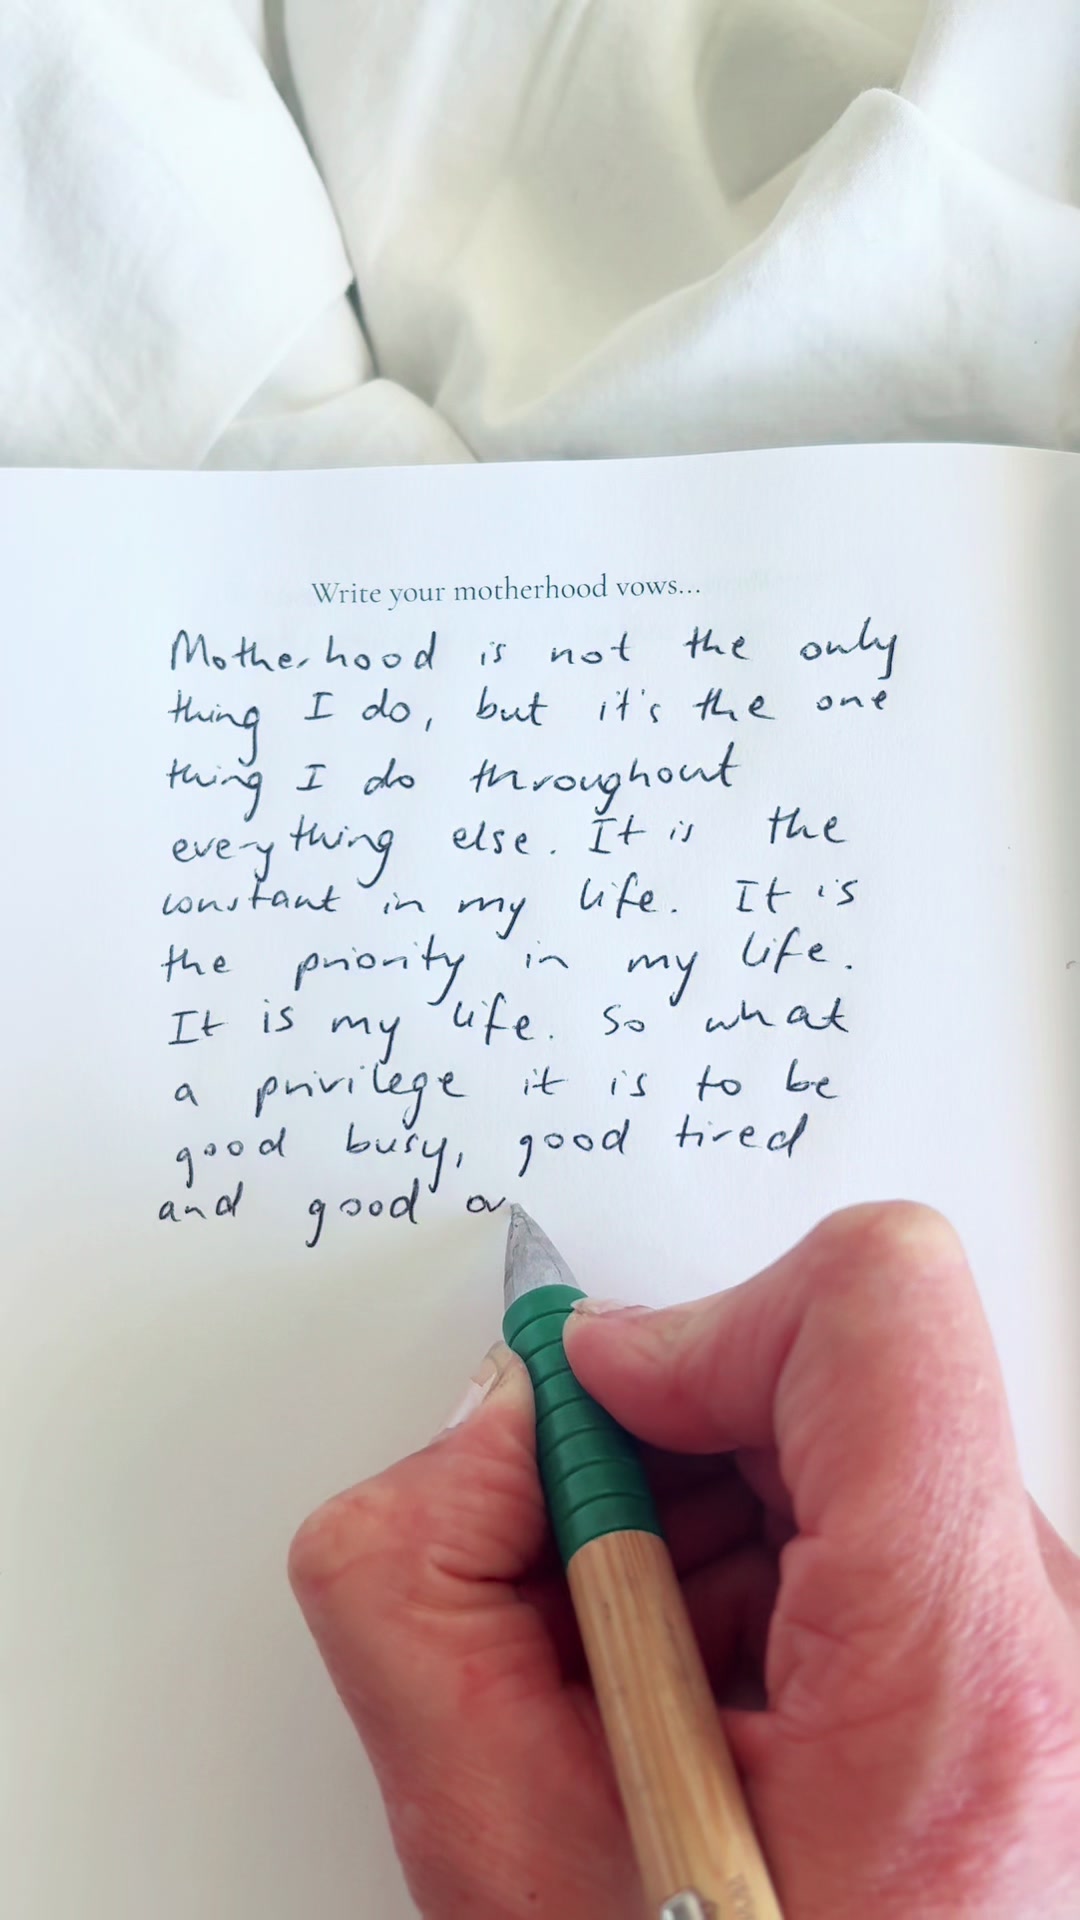 Write your motherhood vows...
Motherhood is not the only
thing I do, but it's the one
thing I do throughout
everything else. It is the
constant in my life. It is
the priority in my life.
It is my life. So what
a privilege it is to be
good busy, good tired
and good ov